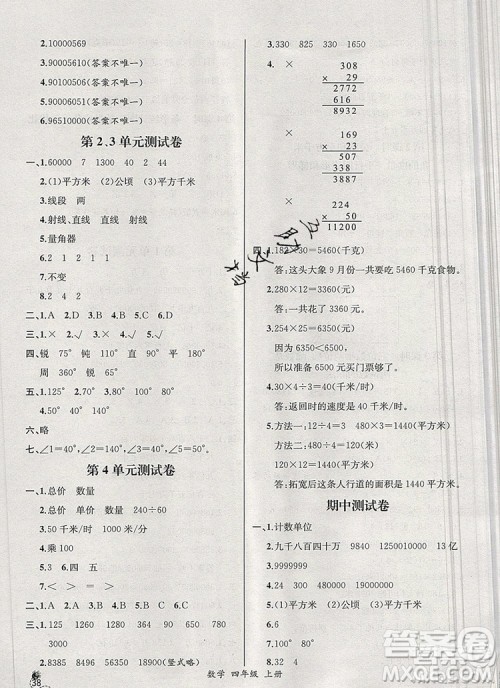 2.10000569
3.90005610(答案不唯一)
4.90100506(答案不唯一)
5.90006051(答案不唯一)
6.96510000(答案不唯一)
第2、3单元测试卷
一、1.60000 7 1300 40 2 44
2.(1)平方米 (2)公顷 (3)平方千米
3.线段 两
4.射线、直线 直线 射线、直线
5.量角器
6.2 1 2 1
7.不变
二、1.A 2.D 3.A 4.D 5.B 6.C
三、1.× 2.× 3.√ 4.× 5.√
四、锐 75° 钝 110° 直 90° 平 180°
周 360° 锐 60°
五、1.105° 2.70° 3.120°
4.30° 5.60° 6.120°
六、略
七、∠1=40°,∠2=40°,∠3=140°
第4单元测试卷
一、1.总价 数量
2.总价 单价 数量 240÷60
3.50千米/时 1000米/分
4.乘100
5.3 6.四 五
7.< > = >
二、1.A 2.B 3.B 4.B 5.C
三、1.150 270 720 1200 4000
3000
2.8385 8496 9510(竖式略)
38
数学 四年级 上册
3.330 825 1650
4. × × 308
× 29
2772
616
8932
× 169
× 23
507
338
3887
× 224
× 50
11200
四、1.182×30=5460(千克)
答:这头大象9月份一共要吃5460千克食物。
2.280×12=3360(元)
答:一共花了3360元。
3.254×25=6350(元)
因为6350<6500,
所以准备6500元买门票够了。
4.30×4÷3=40(千米/时)
答:返回时的速度是40千米/时。
5.方法一:12÷4=3 480×3=1440(平方米) 方法二:480÷4=120(米)
120×12=1440(平方米)
答:拓宽后这条人行道的面积是1440平方米。
期中测试卷
一、1.计数单位
2.九千八百四十万 9840 1250010000 13亿
3.9999999